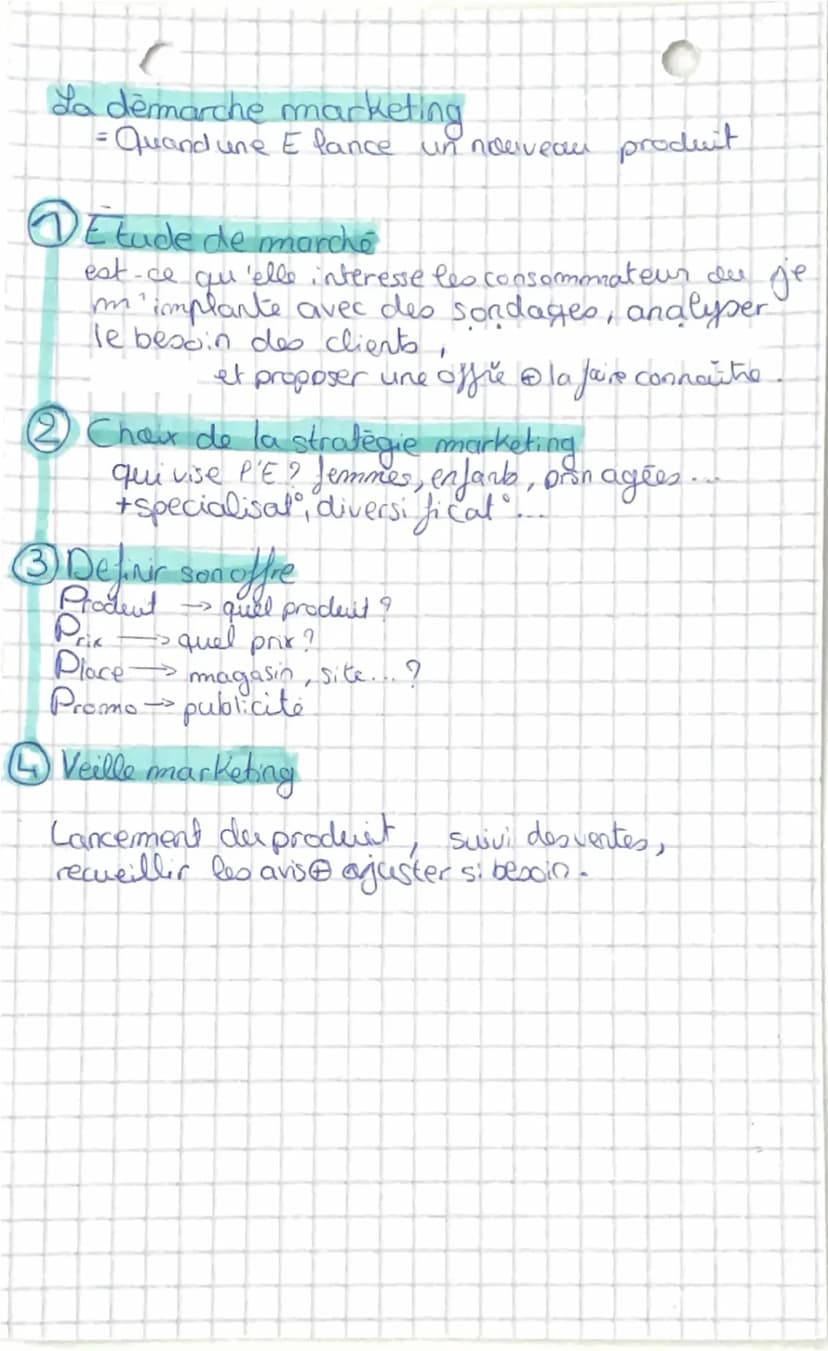 La démarche marketing
= Quand une E lance un nouveau produit
① Etude de marché
est-ce qu'elle interesse les consommateur ou je
m'implante avec des sondages, analyser
le besoin des clients,
et proposer une offre ⊕ la faire connaître.
② Choix de la stratégie marketing
qui vise l'E ? femmes, enfants, prsn agées...
+ specialisat°, diversificat°...
③ Definir son offre
Produit → quel produit ?
Prix → quel prix ?
Place → magasin, site... ?
Promo → publicité
④ Veille marketing
Lancement du produit, suivi des ventes,
recueillir les avis ⊕ ajuster si besoin.